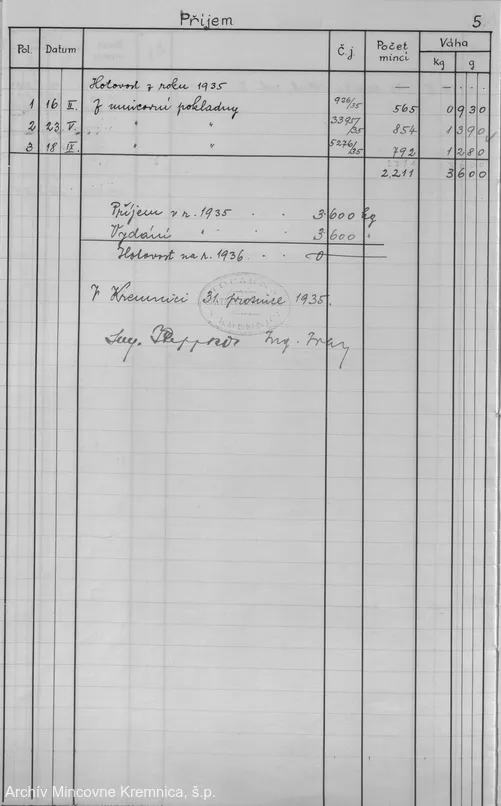 Příjem 5
Pol. Datum Č.j. Počet mincí Váha
Kg g
Hotovost z roku 1935 — —
1 16 II. Z mincovní pokladny 926/35 565 0 930
2 23 V. " " 33957/35 854 1 390
3 18 IX. " " 5276/35 792 1 280
2.211 3 600
Příjem v r. 1935 . . 3.600 kg
Vydání " " . . 3.600 "
Hotovost na r. 1936 . . 0
V Kremnici 31. prosince 1935.
Ing. Ing.
Archív Mincovne Kremnica, š.p.